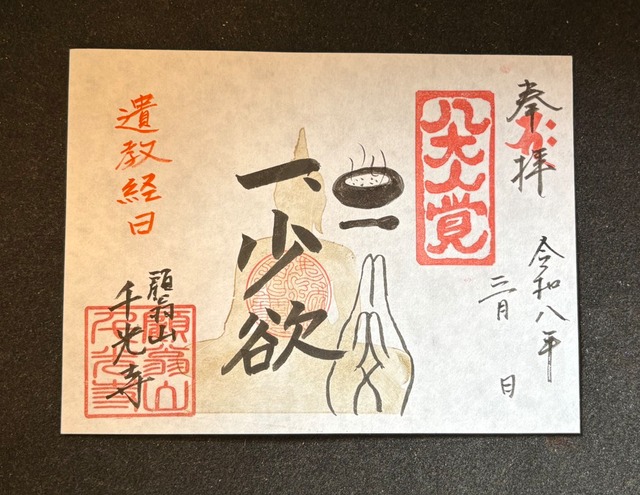 奉拝
令和八年
三月
日
八大人覚
一、少欲
遺教経日
願翁山
千光寺